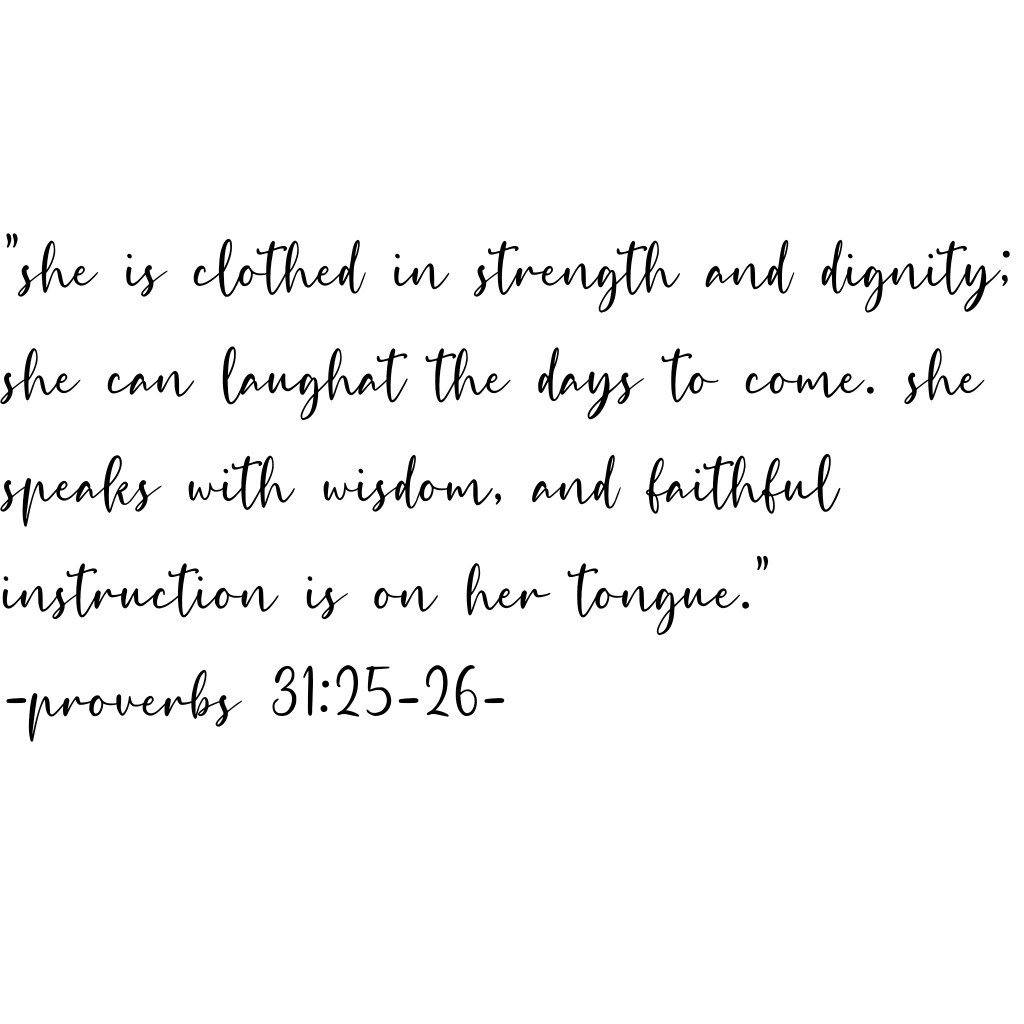 "she is clothed in strength and dignity;
she can laughat the days to come. she
speaks with wisdom, and faithful
instruction is on her tongue."
-proverbs 31:25-26-